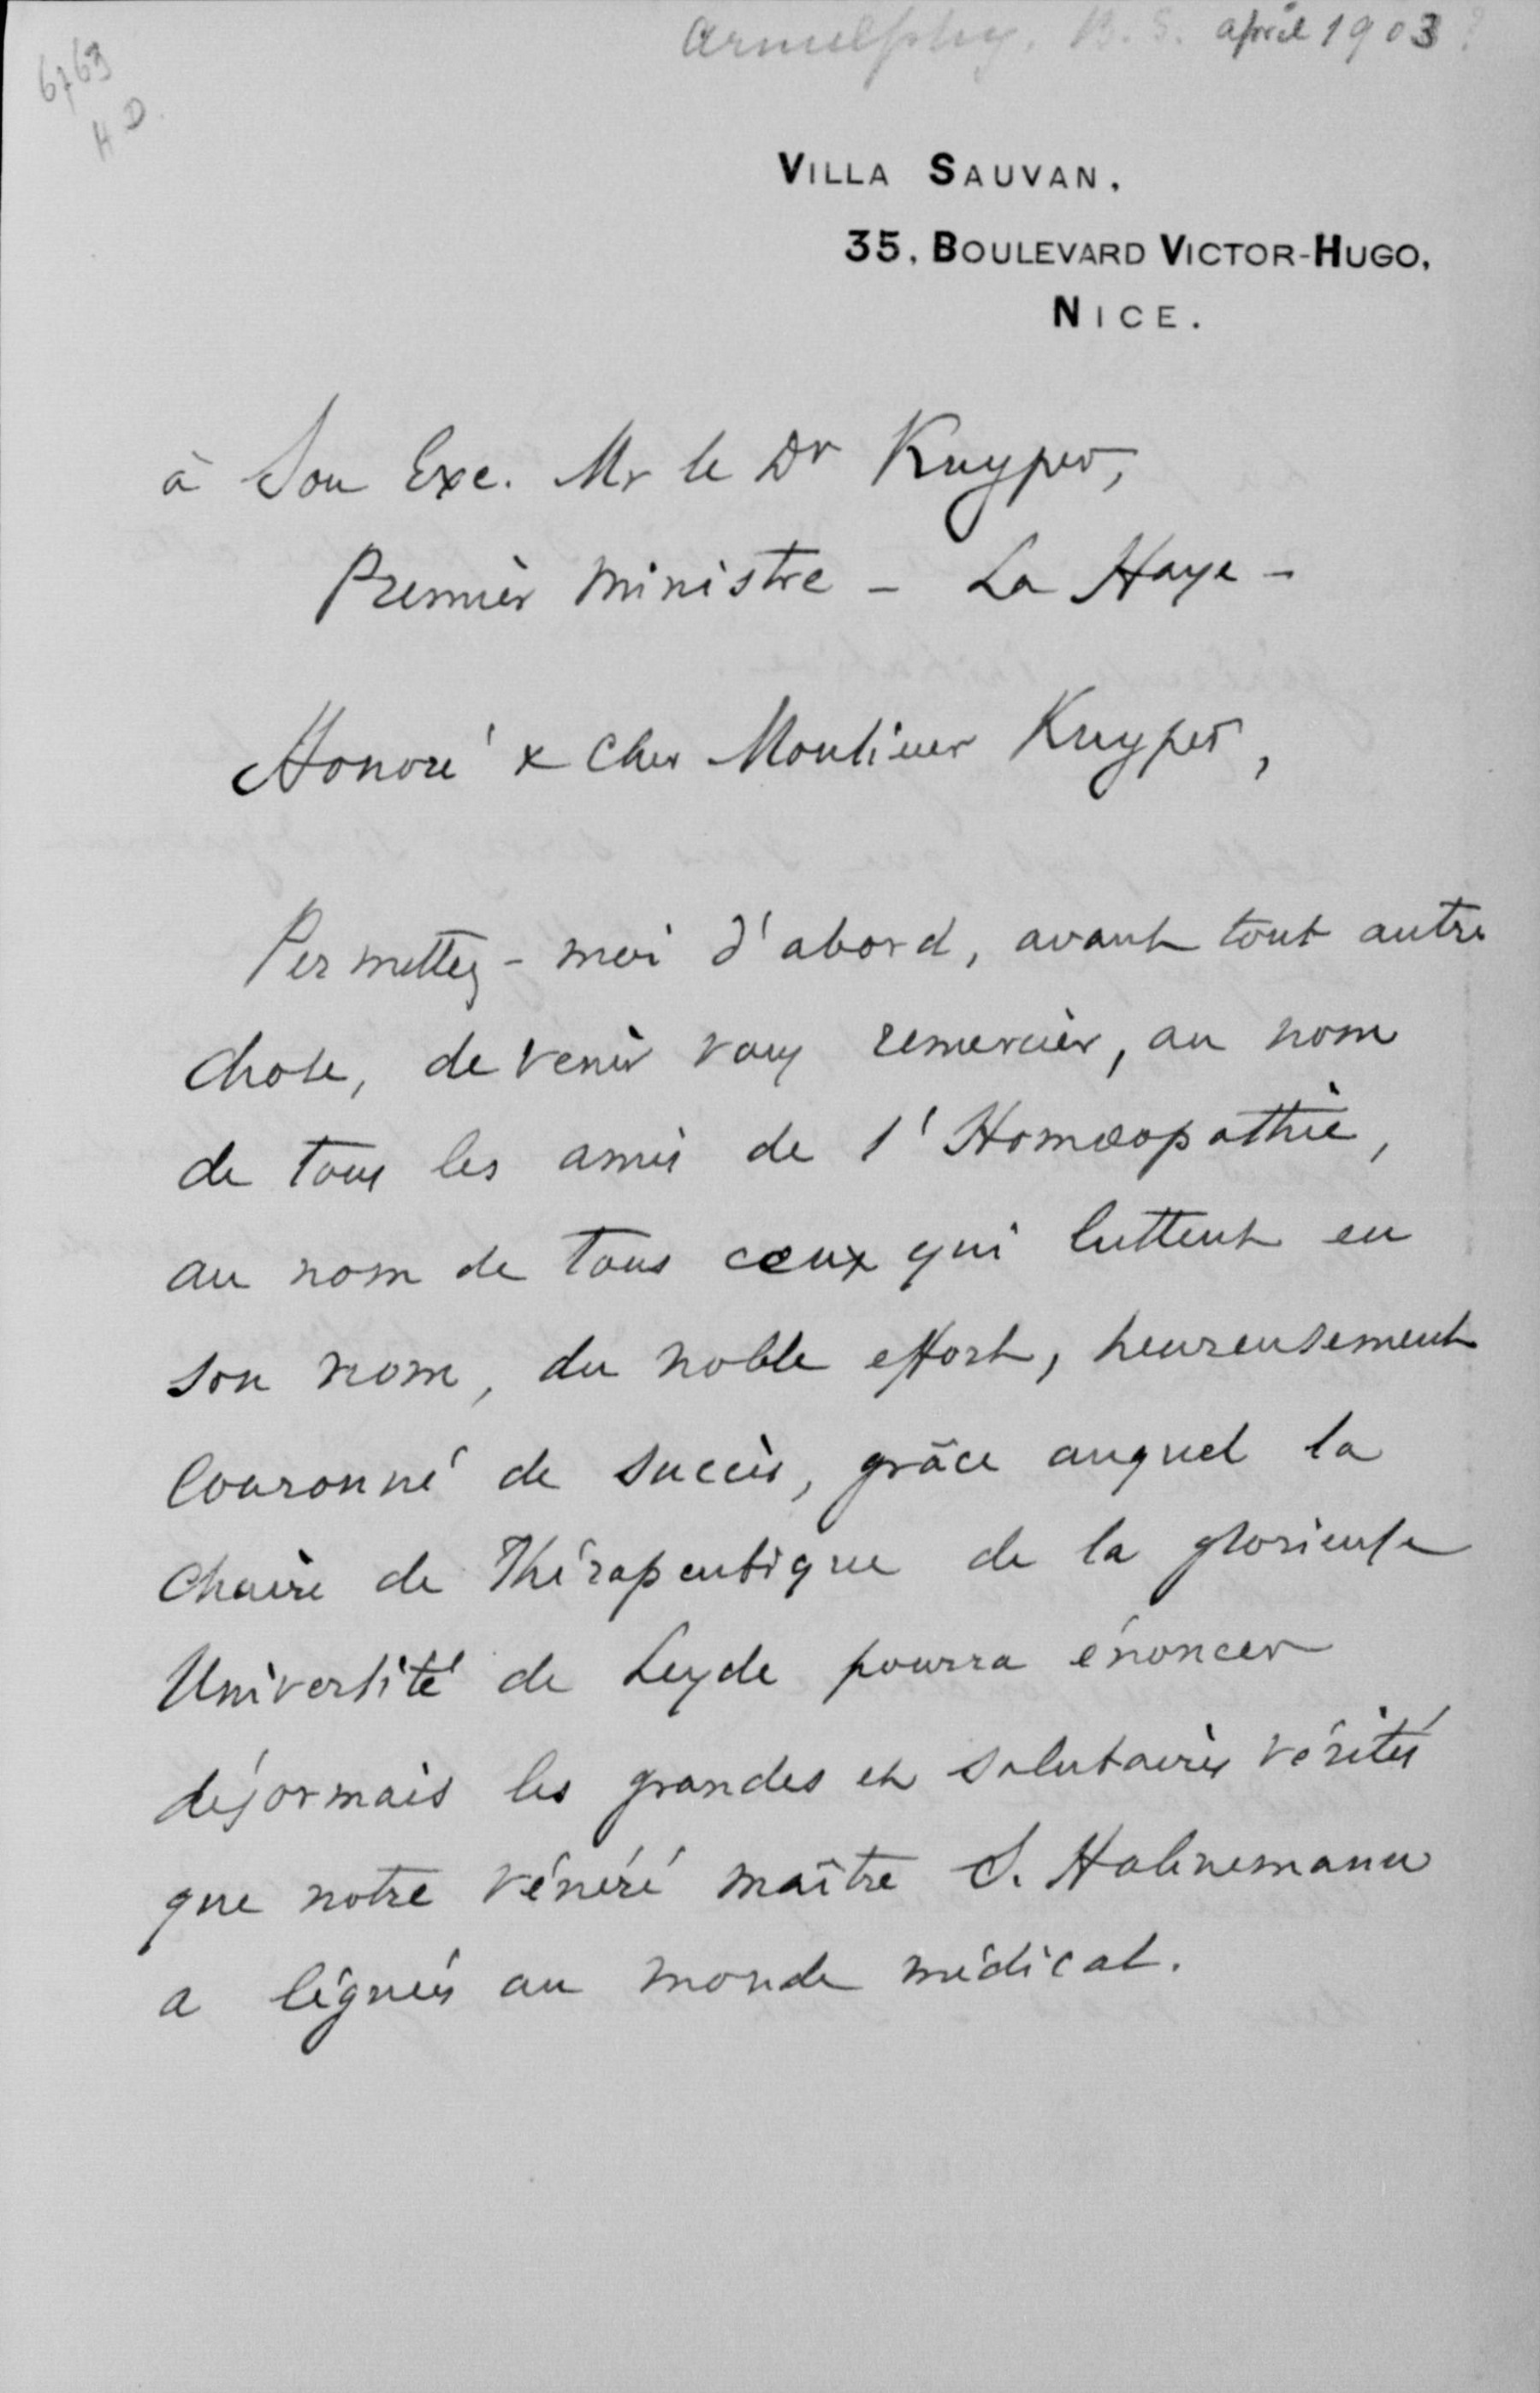 B. S. april 1903?
6763
HD.
VILLA SAUVAN.
35, BOULEVARD VICTOR-HUGO,
NICE.
à Son Exc. Mr le Dr Kuyper,
Premier Ministre - La Haye -
Honoré & cher Monsieur Kuyper,
Permettez-moi d'abord, avant tout autre
chose, de venir vous remercier, au nom
de tous les amis de l'Homœopathie,
au nom de tous ceux qui luttent en
son nom, du noble effort, heureusement
couronné de succès, grâce auquel la
Chaire de Thérapeutique de la glorieuse
Université de Leyde pourra énoncer
désormais les grandes et salutaires vérités
que notre vénéré maître S. Hahnemann
a léguées au monde médical.